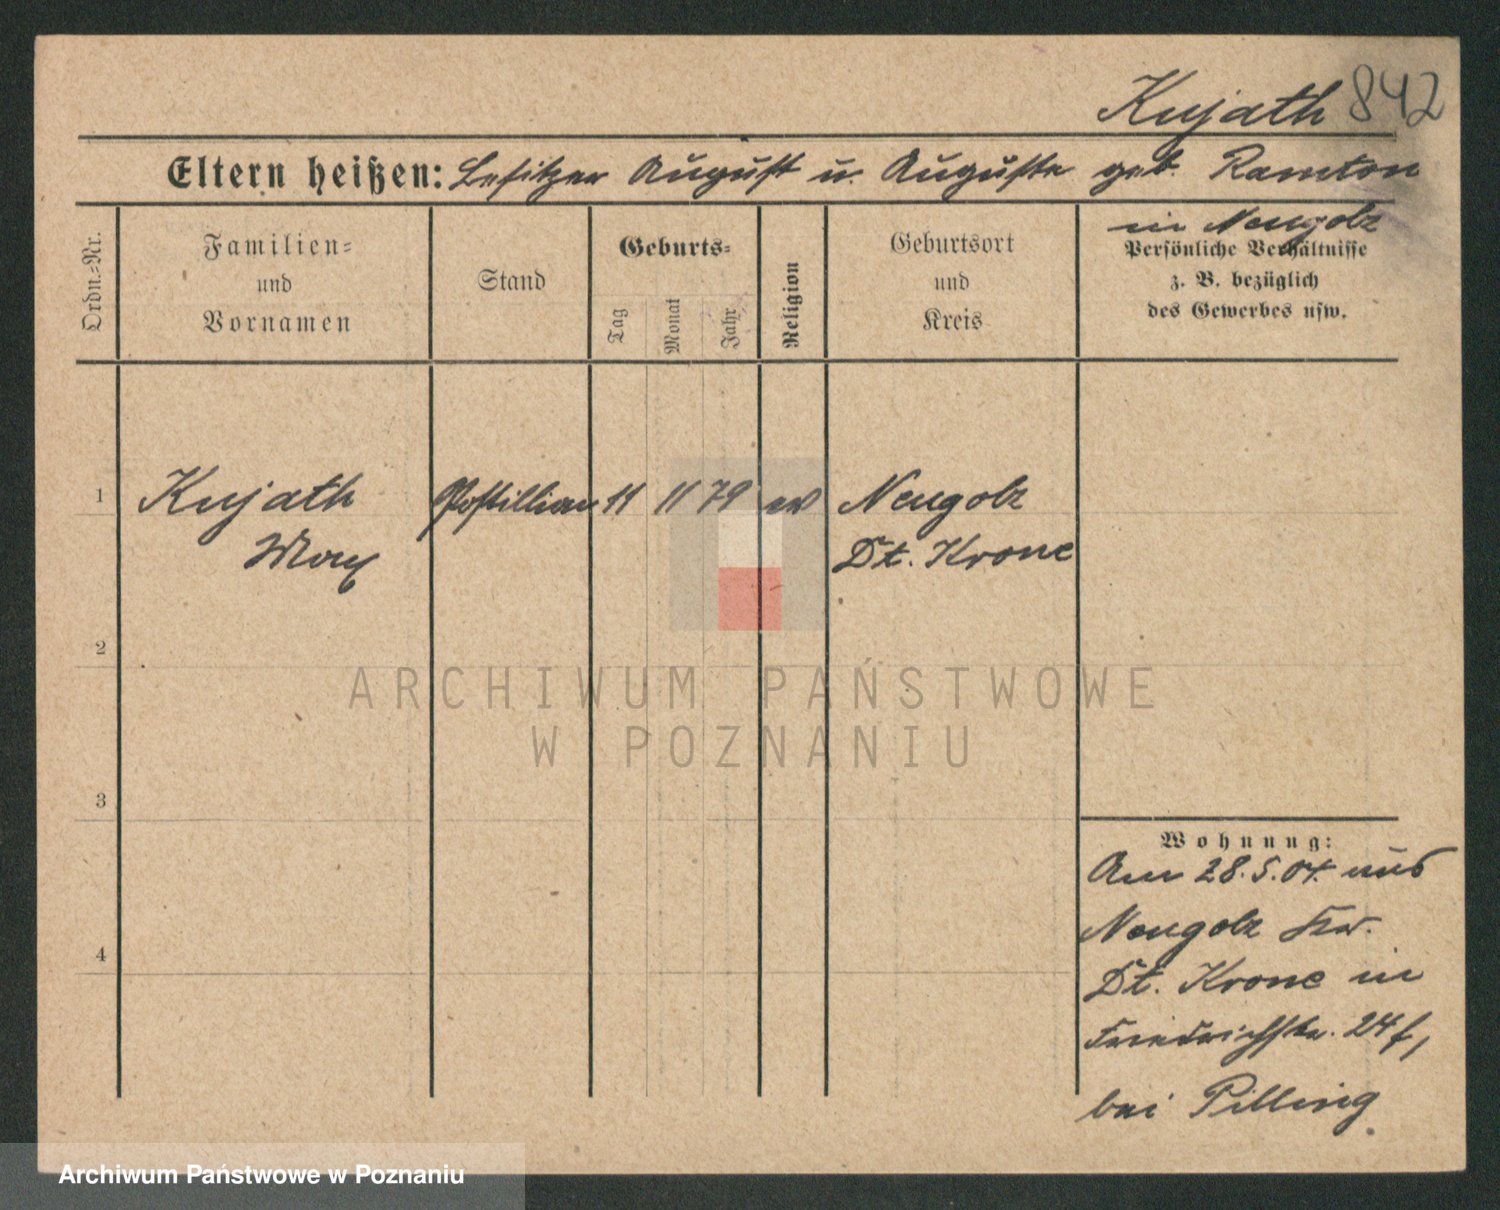 Kujath 842
Eltern heißen: Besitzer August u. Auguste geb. Ramton
in Neugolz
Ordn.-Nr.
Familien-
und
Vornamen
Stand
Geburts-
Tag
Monat
Jahr
Religion
Geburtsort
und
Kreis
Persönliche Verhältnisse
z. B. bezüglich
des Gewerbes usw.
1 Kujath Postillion 11 11 79 ev Neugolz
Max Dt. Krone
2
ARCHIWUM PAŃSTWOWE
W POZNANIU
3
Wohnung:
Am 28.5.04. aus
Neugolz Kr.
4
Dt. Krone in
Friedrichstr. 24 f,
bei Pilling
Archiwum Państwowe w Poznaniu